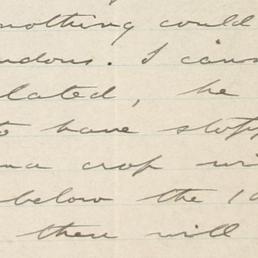 nothing could
ndous. I can
lated, he
to have stopp
na crop wi
below the 10
there will